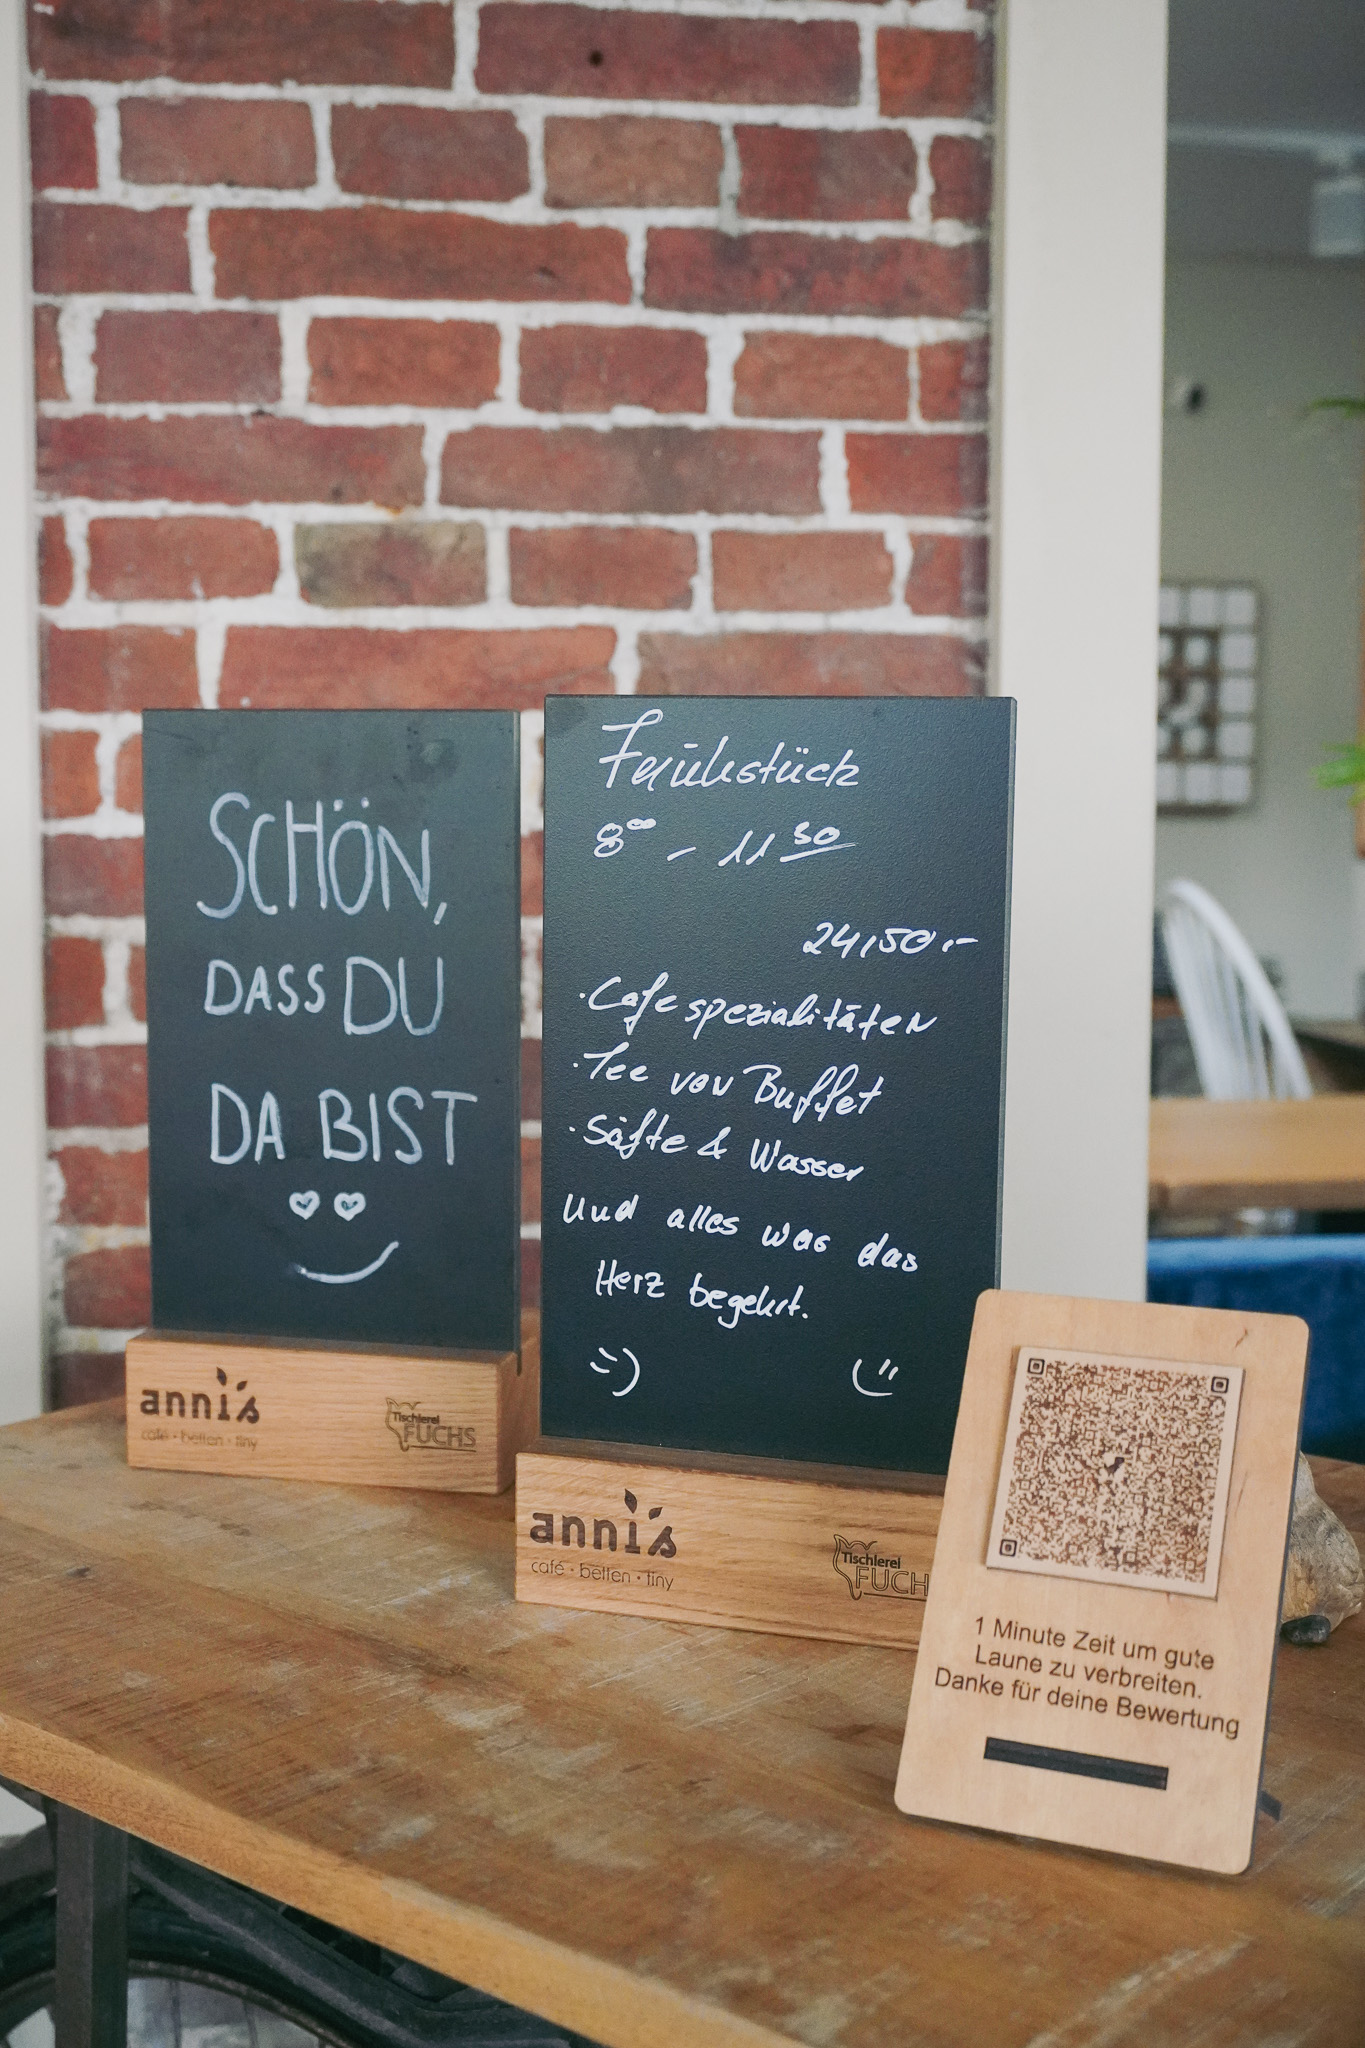 SCHÖN,
DASS DU
DA BIST
anni's
café · betten · tiny
Tischlerei
FUCHS
Frühstück
8⁰⁰ - 11³⁰
24,50.-
· Cafespezialitäten
· Tee von Buffet
· Säfte & Wasser
Und alles was das
Herz begehrt.
:) :)
anni's
café · betten · tiny
Tischlerei
FUCH
1 Minute Zeit um gute
Laune zu verbreiten.
Danke für deine Bewertung